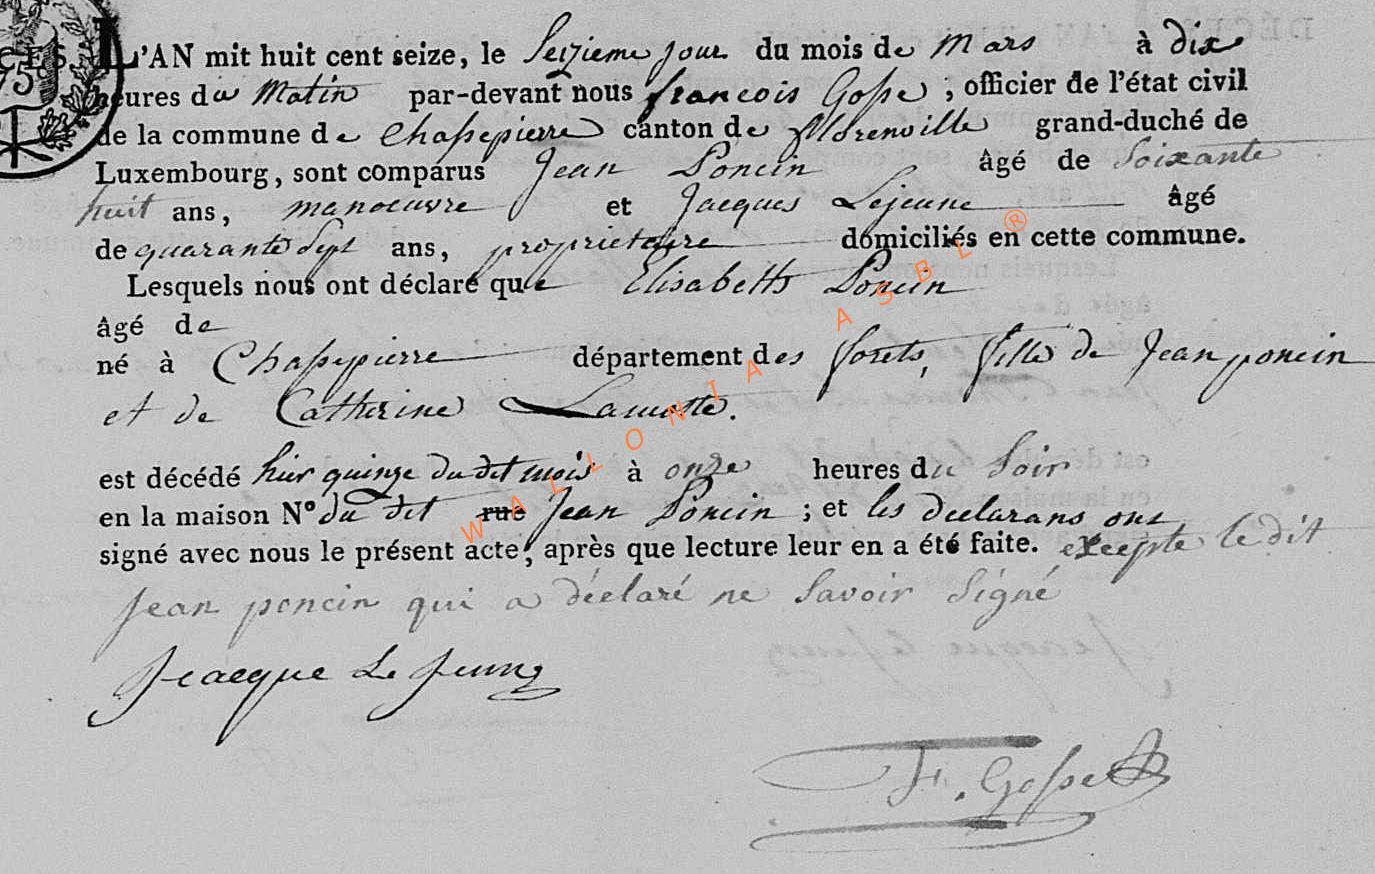 CÈS. L'AN mil huit cent seize, le Seizieme jour du mois de Mars à dix
75
heures du Matin par-devant nous francois Gosse ; officier de l'état civil
de la commune de Chassepierre canton de florenville grand-duché de
Luxembourg, sont comparus Jean Poncin âgé de Soixante
huit ans, manoeuvre et Jacques Lejeune âgé
de quarante Sept ans, proprietaire domiciliés en cette commune.
Lesquels nous ont déclaré que Elisabeth Poncin
âgé de
né à Chassepierre département des forets, fille de Jean poncin
et de Catherine Lamotte.
est décédé hier quinze du dit mois à onze heures du Soir
en la maison N° du dit rue Jean Poncin ; et les declarans ont
signé avec nous le présent acte, après que lecture leur en a été faite. excepte le dit
Jean poncin qui a déclaré ne Savoir Signé
Jacque Le Jeune
F. Gosse
WALLONIA ASBL ®